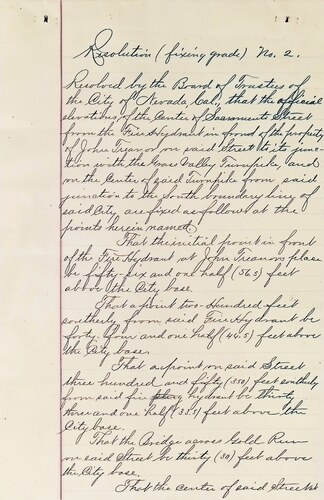 Resolution (fixing grade) No. 2.
Resolved by the Board of Trustees of
the City of Nevada, Cal., that the official
elevations of the Center of Sacramento Street
from the Fire Hydrant in front of the property
of John Treanor on said Street to its junc-
tion with the Grass Valley Turnpike, and
on the Center of said Turnpike from said
junction to the South boundary line of
said City are fixed as follows at the
points herein named.
That the initial point in front
of the Fire Hydrant at John Treanors place
be fifty-six and one half (56.5) feet
above the City base.
That a point two-Hundred feet
southerly from said Fire Hydrant be
forty-four and one half (44.5) feet above
the City base.
That a point on said Street
three hundred and fifty (350) feet southerly
from said fire hydrant be thirty
three and one half (33.5) feet above the
City base.
That the Bridge across Gold Run
on said Street be thirty (30) feet above
the City base.
That the center of said Street at